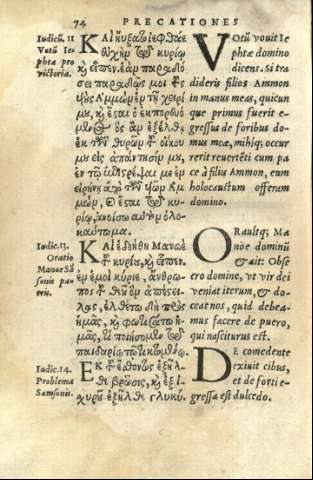 74 PRECATIONES
Iudicū. 11
Votū Ie-
phtæ pro
victoria.
ΚΑὶ ηὔξατο ἰεφθάε
εὐχὴν τῷ κυρίῳ
καὶ εἶπεν. ἐὰν παραδῷς
μοι τοὺς
υἱοὺς Ἀμμὼν ἐν τῇ χειρί
μου, καὶ ἔσται ὁ ἐκπορθυό-
μενος ὃς ἂν ἐξέλθῃ
ἐκ τῶν θυρῶν τοῦ οἴκου
μου εἰς ἀπάντησίν μου,
ἐν
εἰρήνῃ ἀπὸ τῶν υἱῶν Αμ
μὼν, καὶ ἔσται τῷ κυ-
ρίῳ, ἀνοίσω αὐτὸν ὁλο-
καύτωμα.
VOtū vouit Ie
phtæ domino
dicens. Si tra
dideris filios Ammon
in manus meas, quicun
que primus fuerit e-
gressus de foribus do-
mus meæ, mihiq; occur
rerit reuertēti cum pa
ce à filiis Ammon, eum
holocaustum offeram
domino.
Iudic. 13.
Oratio
Manoe Sā-
sonis pa-
tris.
ΚΑὶ ἐδεήθη Μανωὲ
τοῦ κυρίου, καὶ εἶπεν.
ἐν ἐμοὶ κύριε, ἄνθρω-
πος τοῦ θεοῦ ὃν ἀπέστει-
λας, ἐλθέτω δὴ πρὸς
ἡμᾶς, καὶ φωτισάτω ἡ-
μᾶς, τί ποιήσωμεν τῷ
παιδαρίῳ τῷ
ORauitq; Ma
noe dominū
& ait: Obse
cro domine, ut vir dei
veniat iterum, & do-
ceat nos, quid debea-
mus facere de puero,
qui nasciturus est.
Iudic. 14.
Problema
Samsonis.
ΕΚ τοῦ ἔσθοντος ἐξῆλ-
θε βρῶσις, καὶ ἐξ ἰ-
χυροῦ ἐξῆλθε γλυκύ.
DE comedente
exiuit cibus,
et de forti e-
gressa est dulcedo.